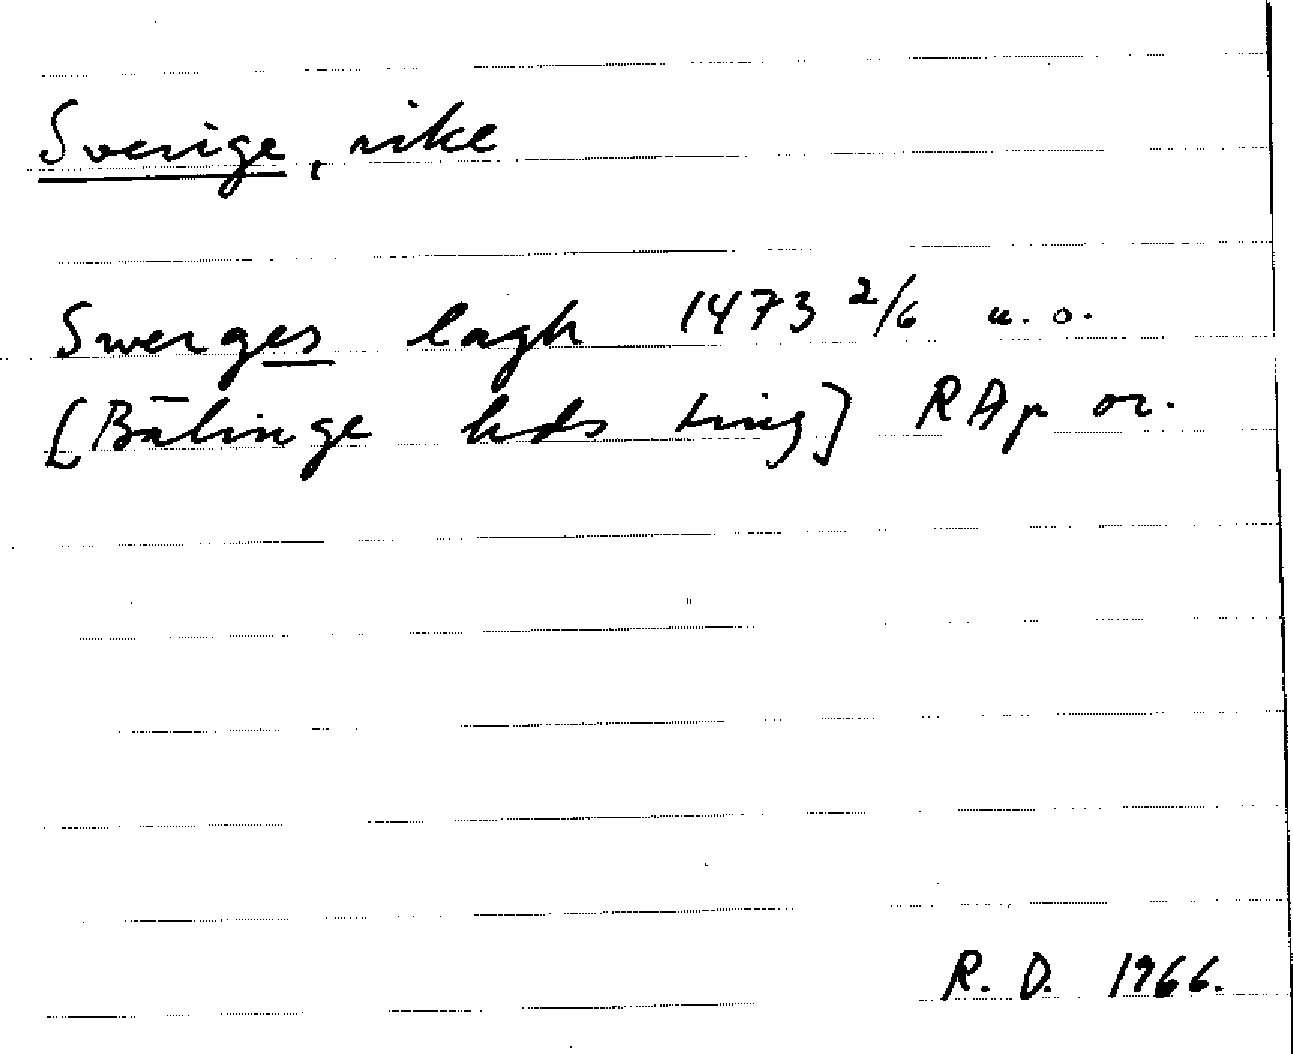 Sverige, rike
Swerges lagh 1473 2/6 u.o.
[Bälinge hds ting] RAp or.
R. D. 1966.